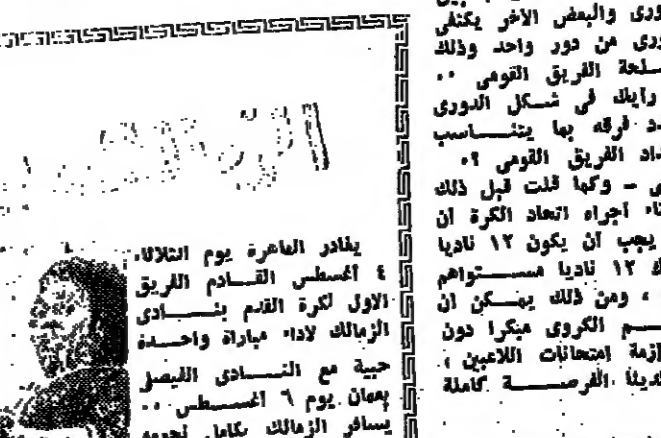 ورى والبعض الآخر يكتفى
ورى من دور واحد وذلك
سلحة الفريق القومى ..
رايك فى شكل الدورى
د فرقه بها يتناسب
داد الفريق القومى ؟.
ى - وكما قلت قبل ذلك
ناء اجراء اتحاد الكرة ان
يجب أن يكون ١٢ ناديا
ك ١٢ ناديا مستواهم
، ومن ذلك يمكن ان
سم الكروى مبكرا دون
ازمة امتحانات اللاعبين ،
لدينا الفرصة كاملة
يغادر القاهرة يوم الثلاثاء
٤ أغسطس القادم الفريق
الاول لكرة القدم بنادى
الزمالك لاداء مباراة واحدة
حبية مع النادى الفيصل
بعمان يوم ٦ أغسطس ..
يسافر الزمالك بكامل نجومه